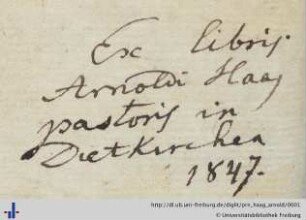 Ex libris
Arnoldi Haas
pastoris in
Dietkirchen
1847.
http://dl.ub.uni-freiburg.de/diglit/prn_haag_arnold/0001
© Universitätsbibliothek Freiburg